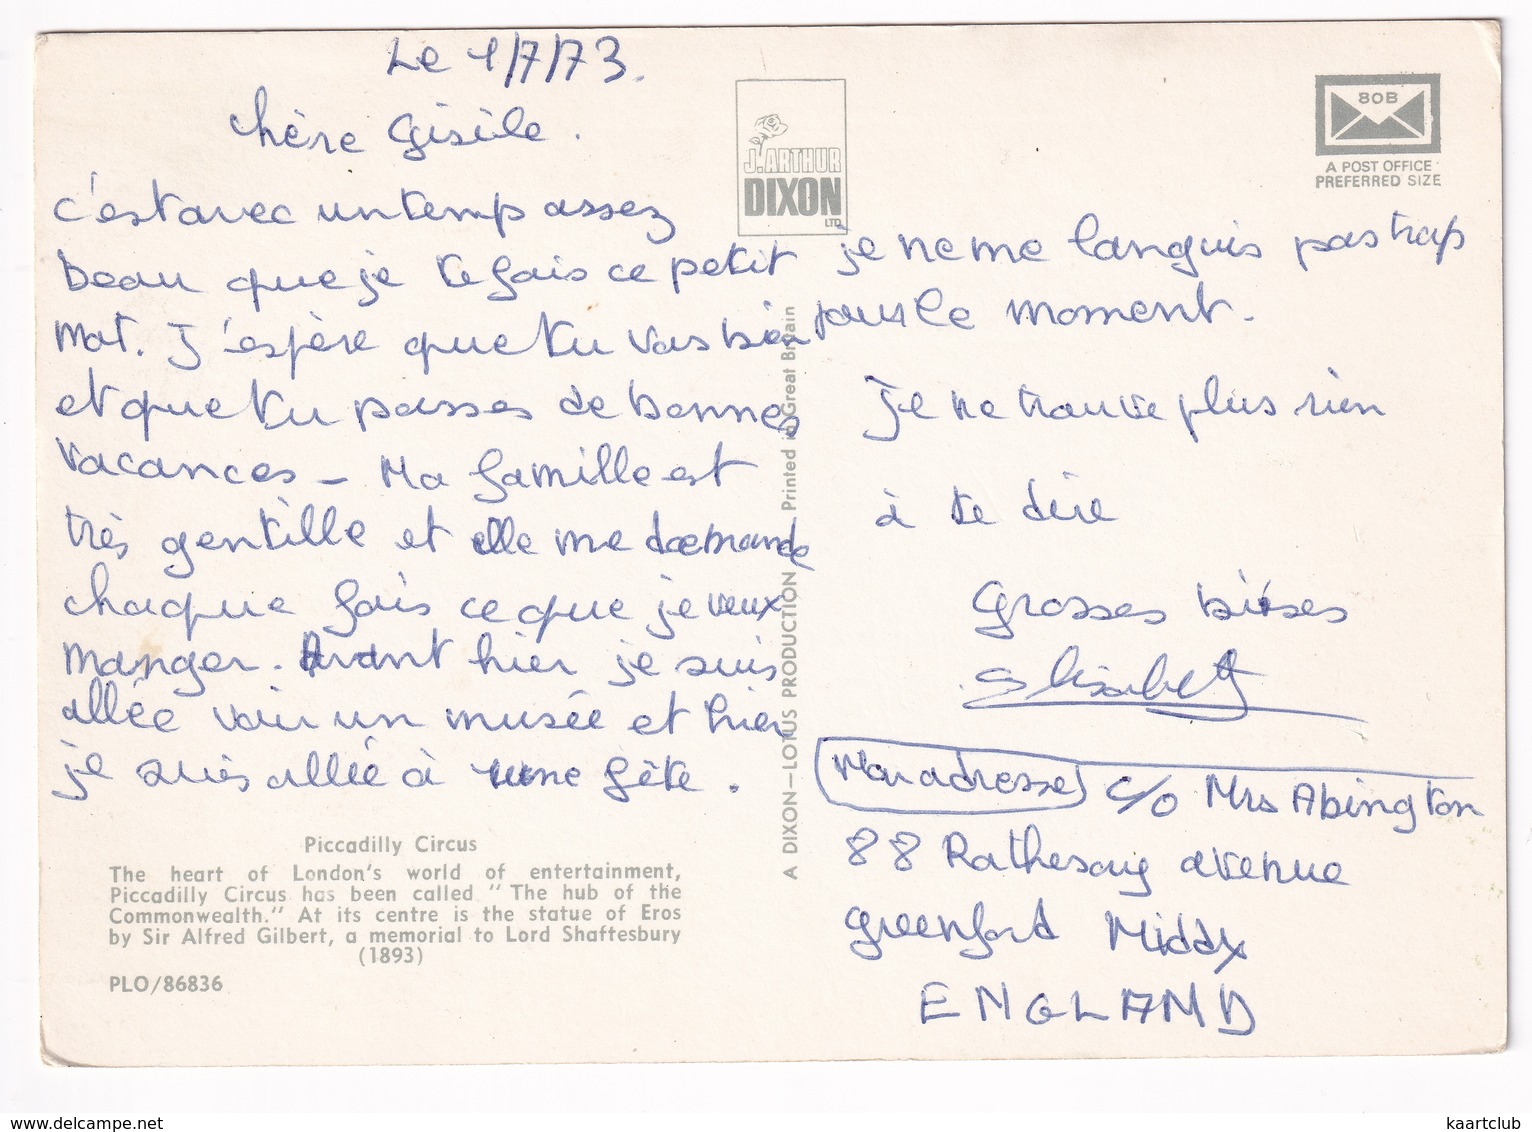 Le 1/7/73.
chère Gisèle.
c'est avec un temps assez
beau que je te fais ce petit
mot. J'espère que tu vas bien
et que tu passes de bonnes
vacances - Ma famille est
très gentille et elle me demande
chaque fois ce que je veux
manger. Avant hier je suis
allée voir un musée et hier
je suis allée à une fête.
Piccadilly Circus
The heart of London's world of entertainment,
Piccadilly Circus has been called "The hub of the
Commonwealth." At its centre is the statue of Eros
by Sir Alfred Gilbert, a memorial to Lord Shaftesbury
(1893)
PLO/86836
J. ARTHUR
DIXON
LTD.
A DIXON-LOTUS PRODUCTION Printed in Great Britain
80B
A POST OFFICE
PREFERRED SIZE
je ne me languis pas trop
pour le moment.
Je ne trouve plus rien
à te dire
Grosses bises
Elisabeth
Mon adresse c/o Mrs Abington
88 avenue
Greenford Middx
ENGLAND
kaartclub